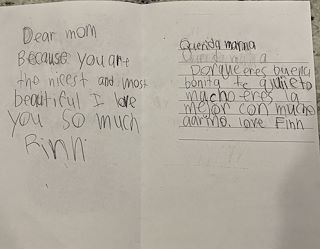 Dear mom
Because you are
the nicest and most
beautiful I love
you so much
Finn
Querida mama
Porque eres buena
bonita te quieto
macho eres la
mejor con mucho
cariño. love Finn